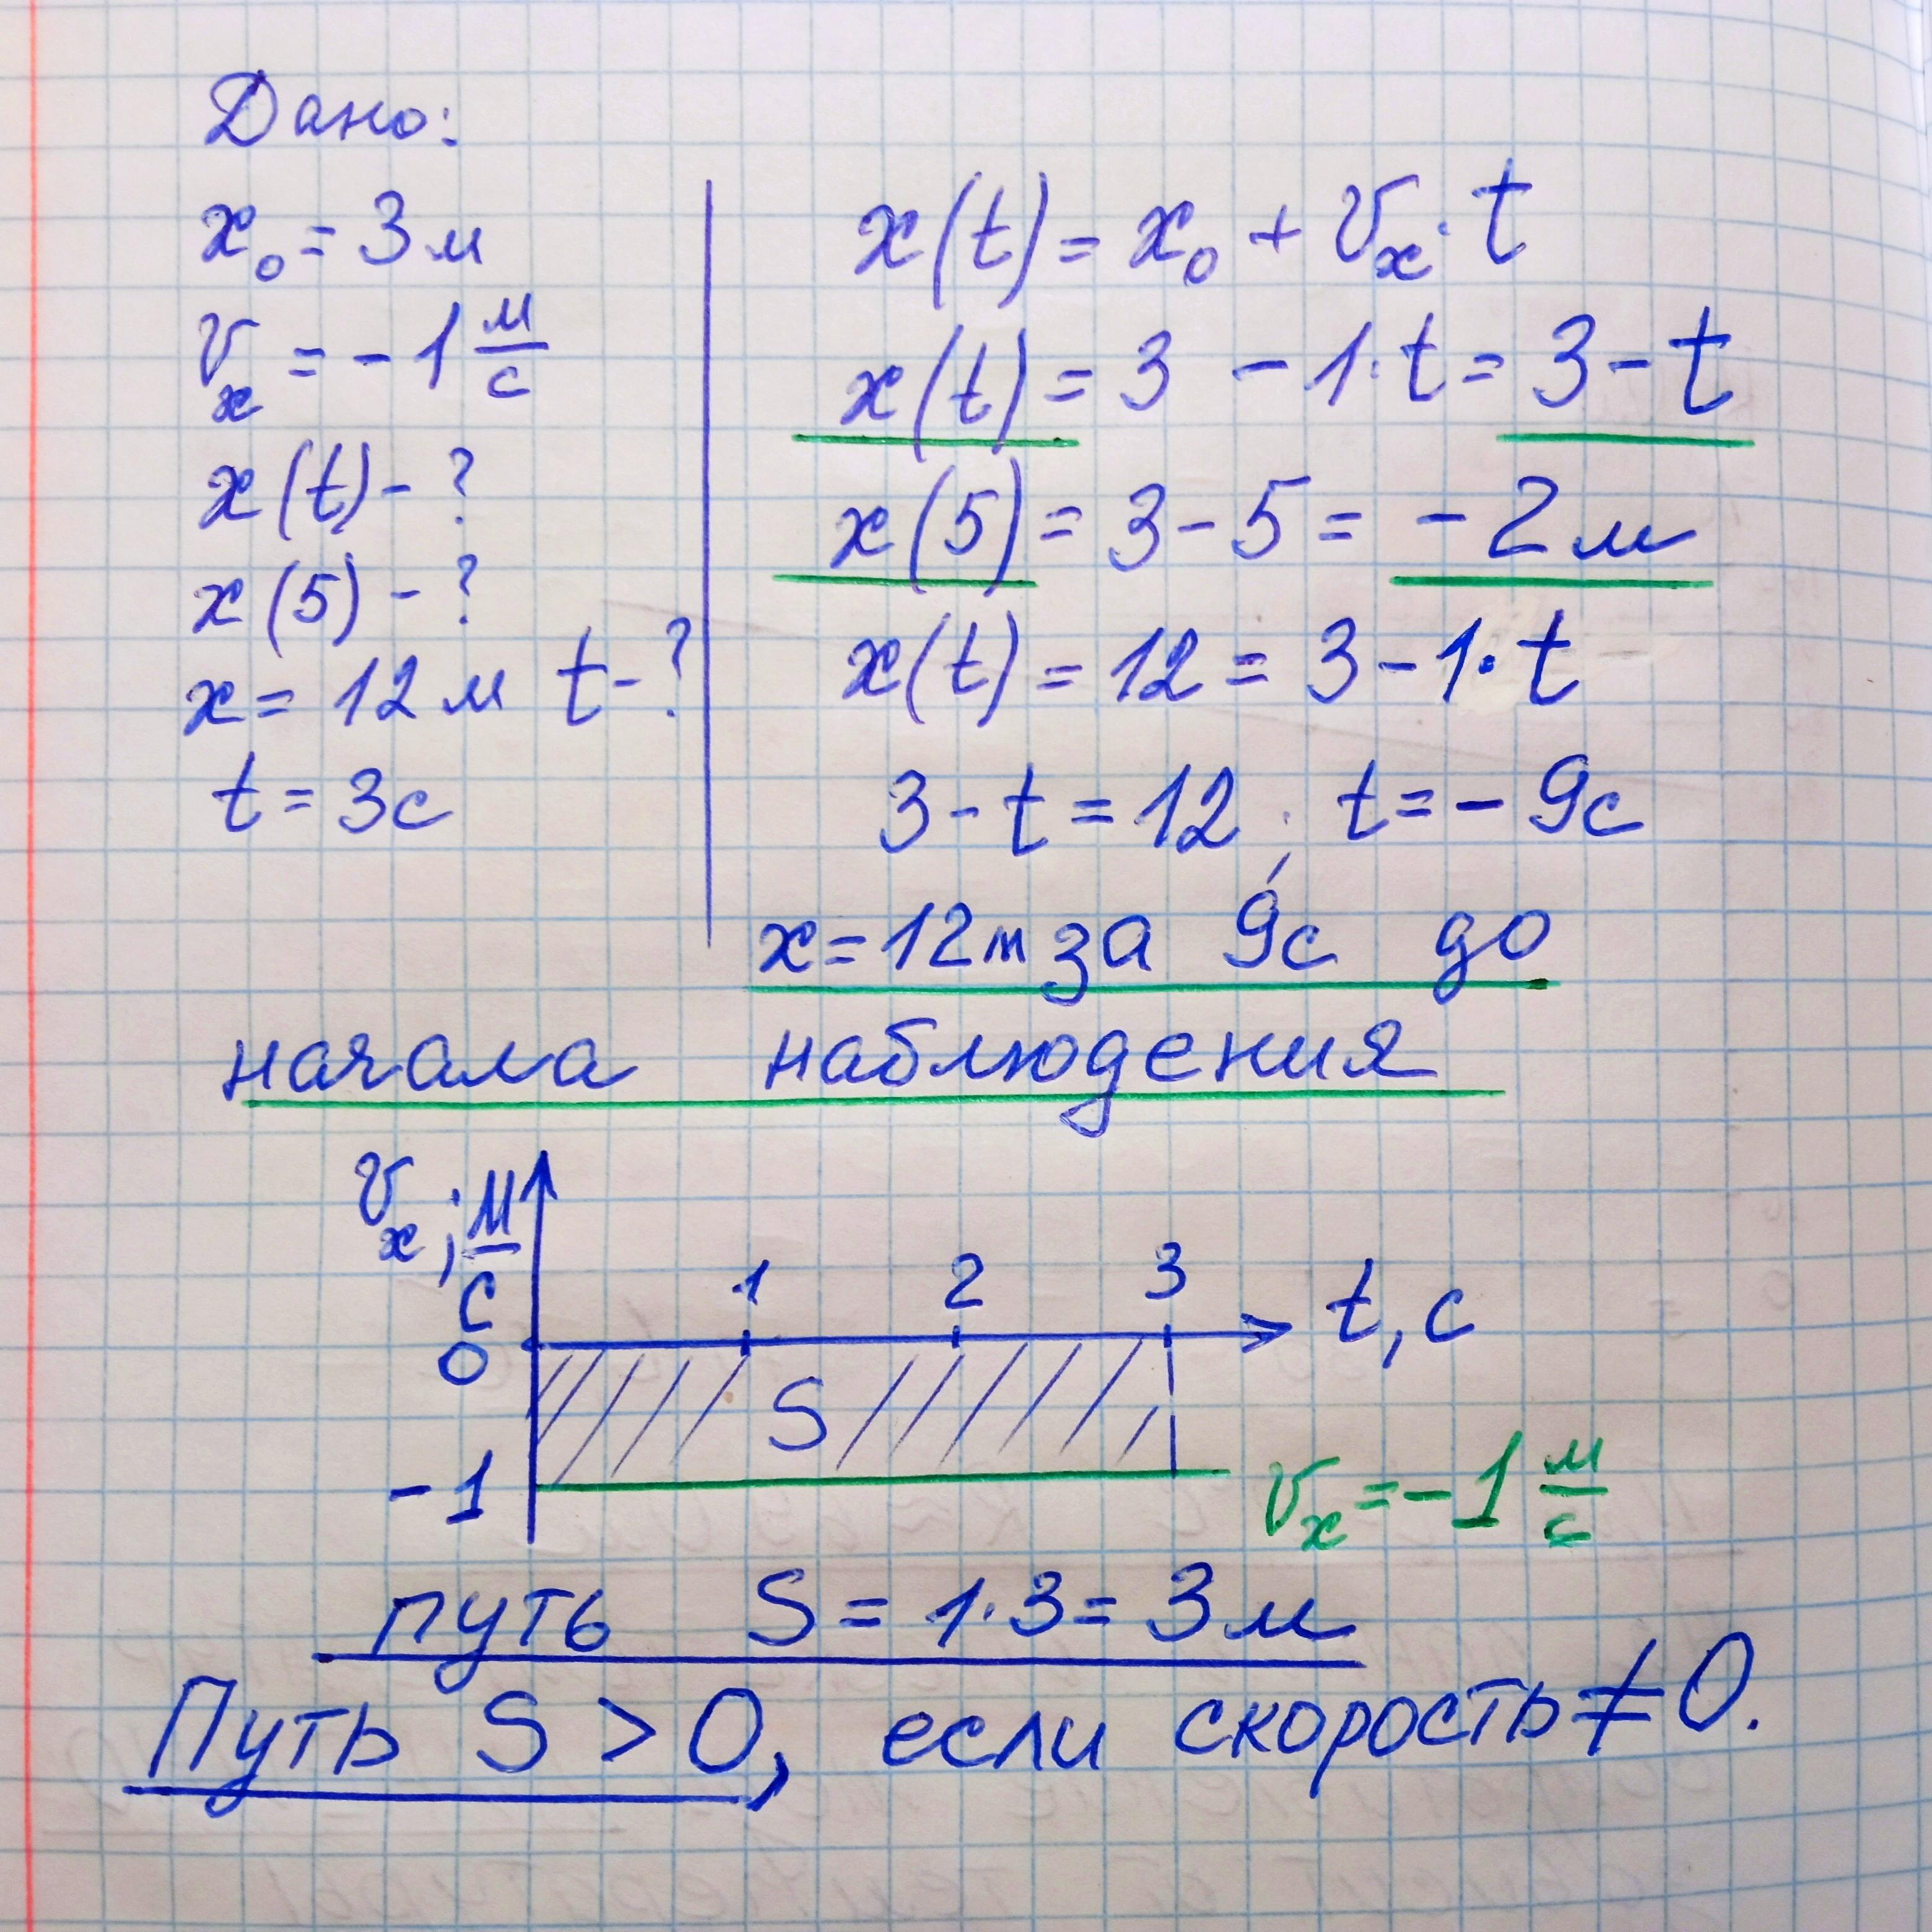 Дано:
x₀ = 3 м
vₓ = - 1 м/с
x(t) - ?
x(5) - ?
x = 12 м t - ?
t = 3с
x(t) = x₀ + vₓ · t
x(t) = 3 - 1 · t = 3 - t
x(5) = 3 - 5 = - 2 м
x(t) = 12 = 3 - 1 · t
3 - t = 12, t = - 9с
x = 12м за 9с до
начала наблюдения
vₓ; м/с
1 2 3 t, с
0
S
-1
vₓ = - 1 м/с
путь S = 1 · 3 = 3 м
Путь S > 0, если скорость ≠ 0.